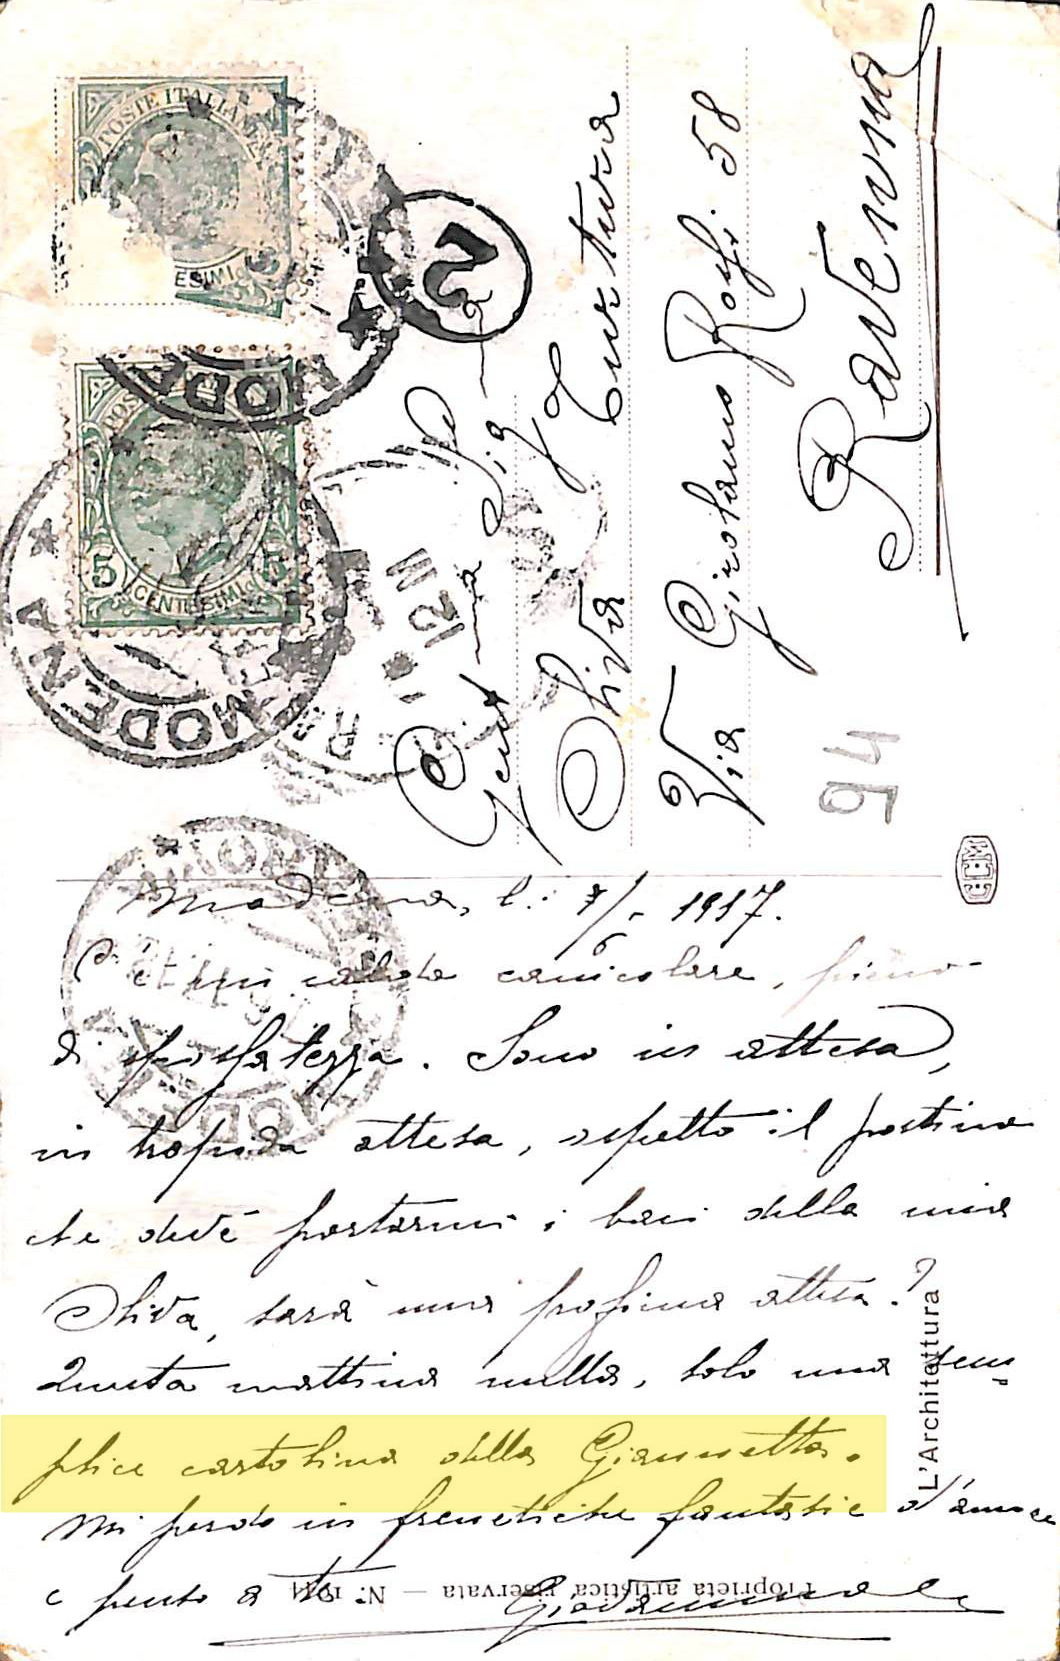 POSTE ITALIANE
ESIMI
MODENA
2
5 CENTESIMI 5
MODENA
12 III
Gent.ma Sig.na
Oliva Turtura
Via Girolamo Rossi. 58
Ravenna
94
CCM
Modena, li: 7/6 1917.
C'è un caldo canicolare, pieno
di spossatezza. Sono in attesa,
in trepida attesa, aspetto il postino
che deve portarmi i baci della mia
Oliva, sarà una prossima attesa?
Questa mattina nulla, solo una sem
plice cartolina della Giannetta.
Mi perdo in frenetiche fantasie d'amore
e penso a te.
Giovannino
L'Architettura
Proprietà artistica riservata — N.